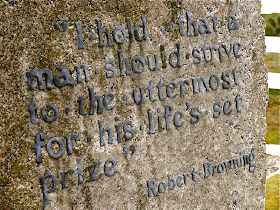 "I·hold·that·a
man·should·strive
to·the·uttermost
for·his·life's·set
prize"
Robert·Browning